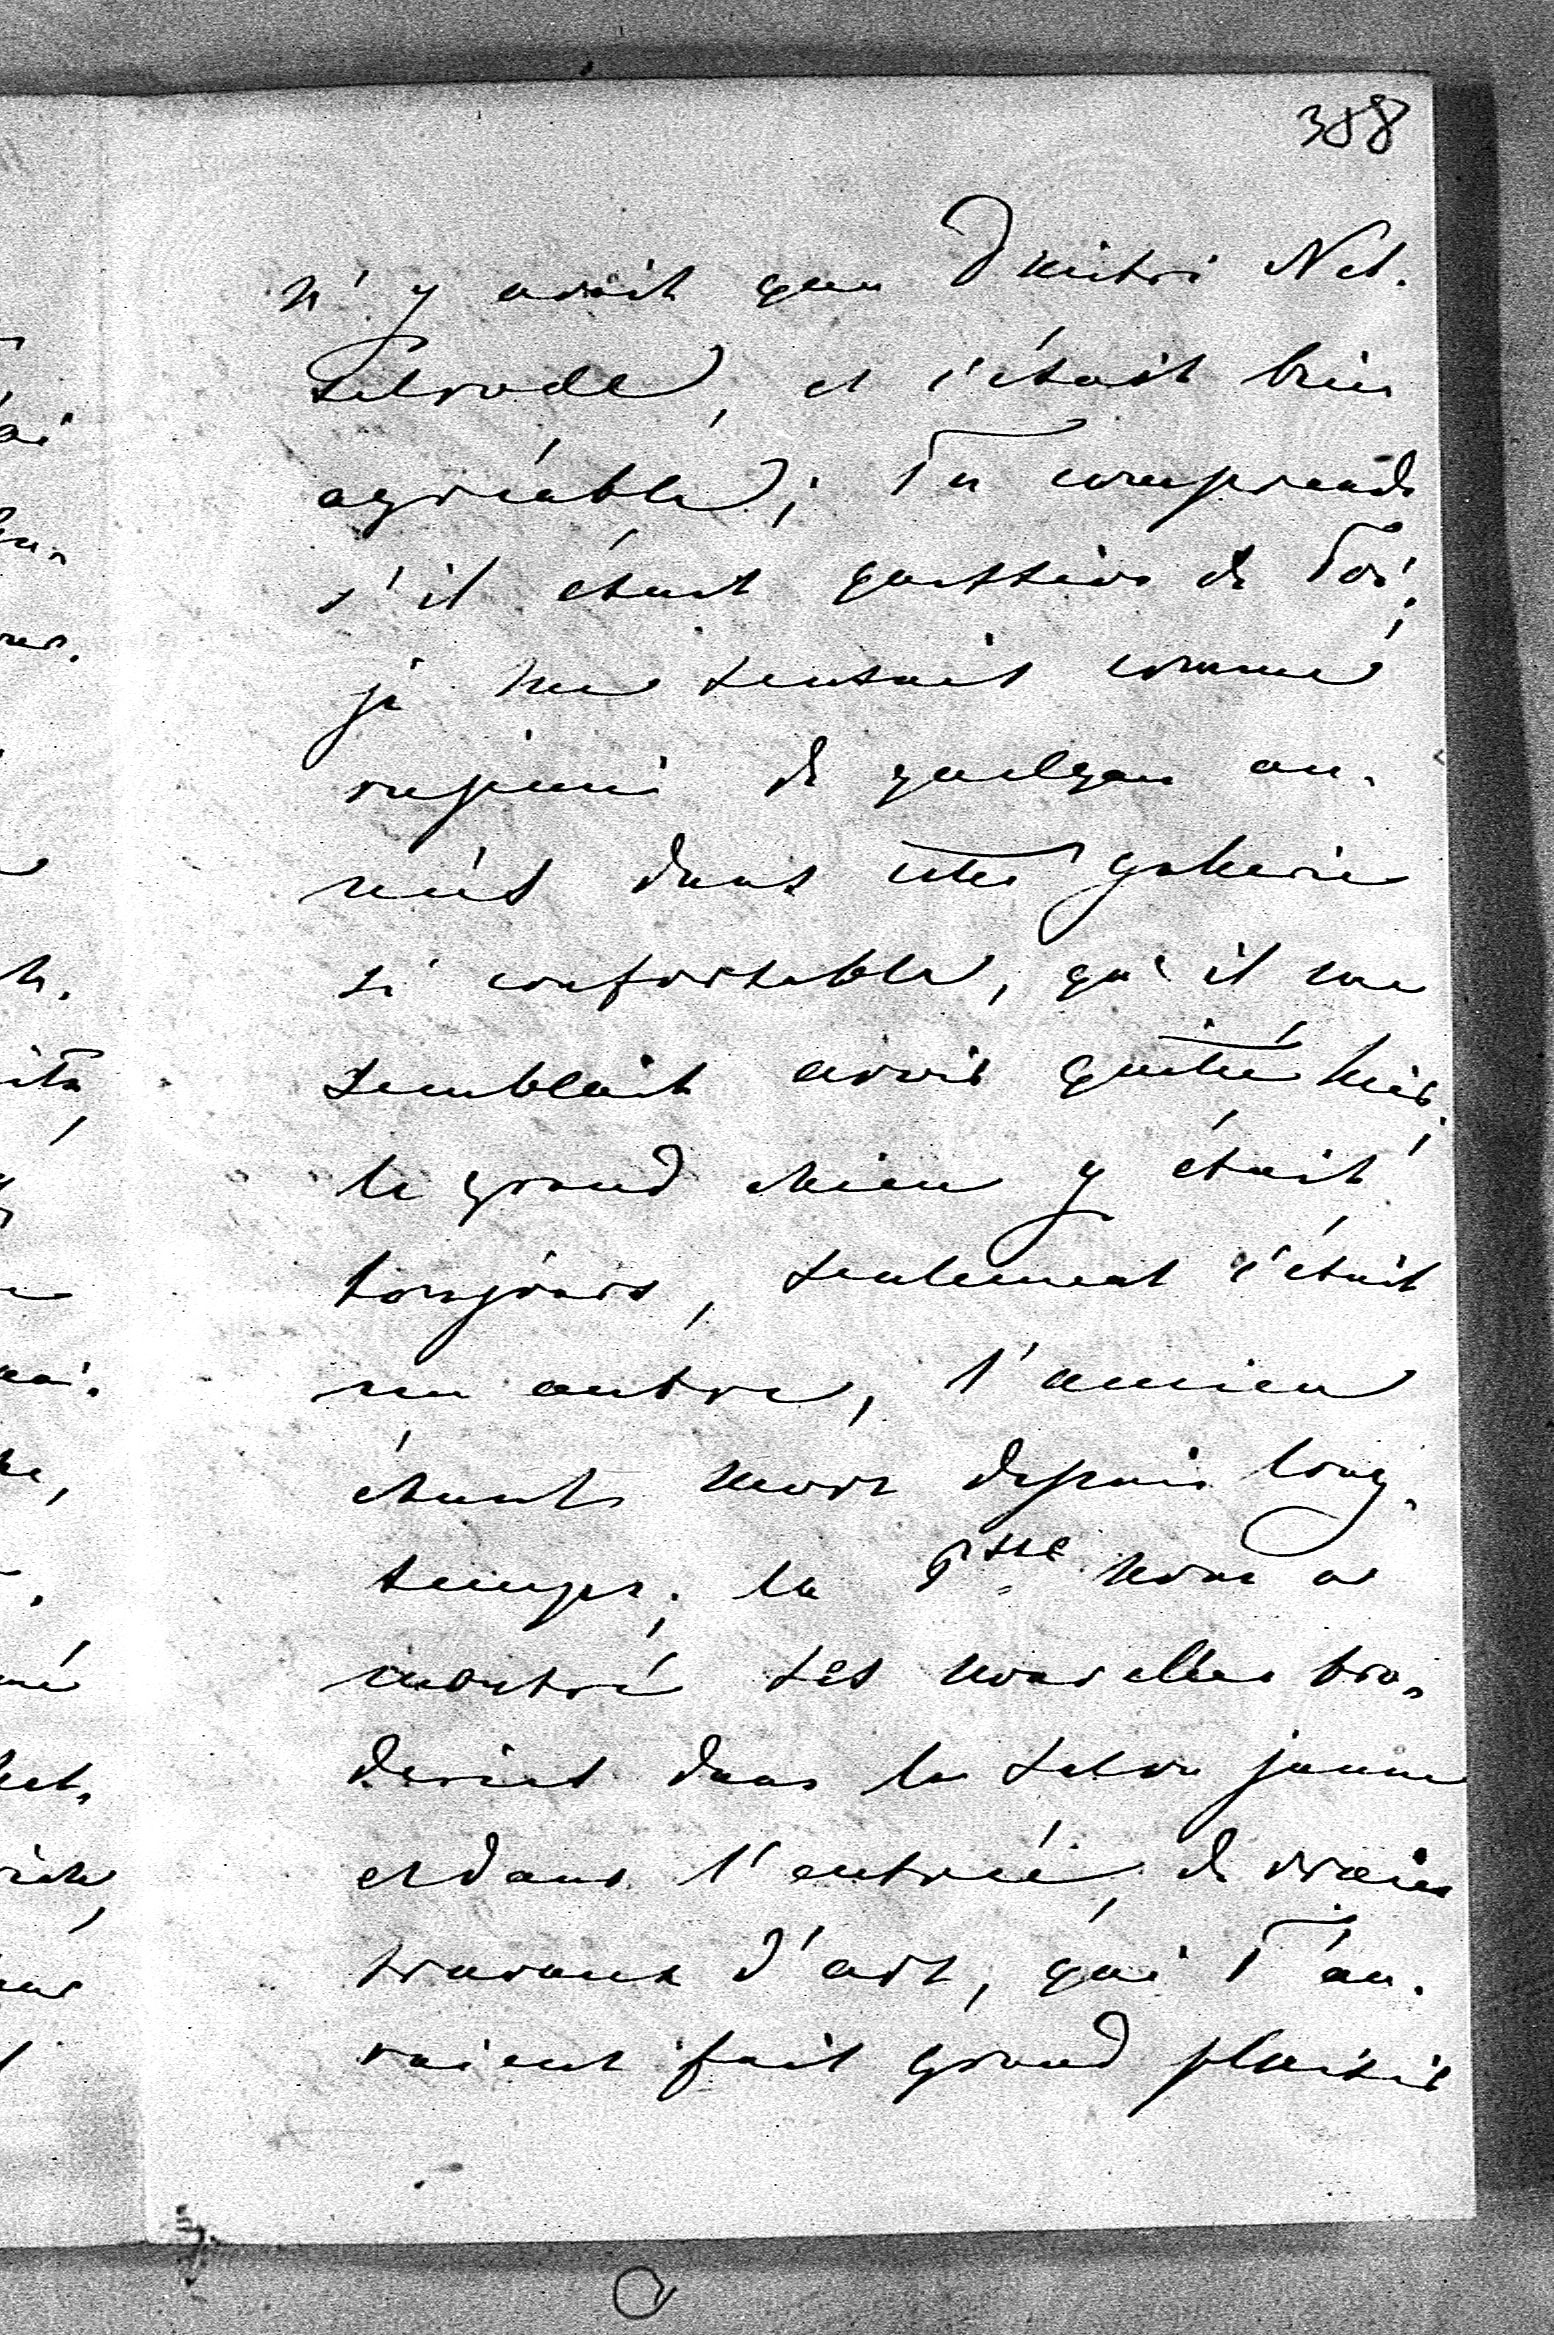 388
n'y avait que Dmitri Nes.
selrode, et c'était bien
agréable; Tu comprends
s'il était question de Toi;
je me sentais comme
rajeuni de quelques an.
nées dans cette galerie
si confortable, qu'il me
semblait avoir quitté hier;
le grand chien y était
toujours, seulement c'était
un autre, l'ancien
étant mort depuis long.
temps; la Psse nous a
montré ses nouvelles bro.
deries dans le salon jaune
et dans l'entrée, de vraies
travaux d'art, qui T'au.
raient fait grand plaisir